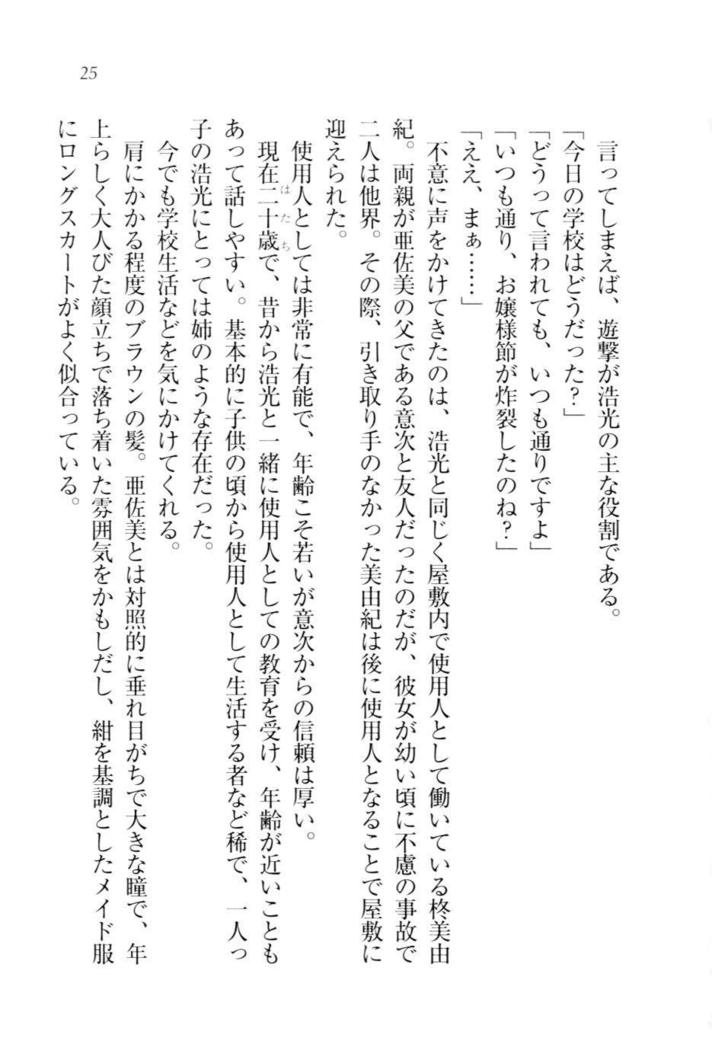 25
言ってしまえば、遊撃が浩光の主な役割である。
「今日の学校はどうだった？」
「どうって言われても、いつも通りですよ」
「いつも通り、お嬢様節が炸裂したのね？」
「ええ、まぁ……」
不意に声をかけてきたのは、浩光と同じく屋敷内で使用人として働いている柊美由
紀。両親が亜佐美の父である意次と友人だったのだが、彼女が幼い頃に不慮の事故で
二人は他界。その際、引き取り手のなかった美由紀は後に使用人となることで屋敷に
迎えられた。
使用人としては非常に有能で、年齢こそ若いが意次からの信頼は厚い。
現在二十歳で、昔から浩光と一緒に使用人としての教育を受け、年齢が近いことも
はたち
あって話しやすい。基本的に子供の頃から使用人として生活する者など稀で、一人っ
子の浩光にとっては姉のような存在だった。
今でも学校生活などを気にかけてくれる。
肩にかかる程度のブラウンの髪。亜佐美とは対照的に垂れ目がちで大きな瞳で、年
上らしく大人びた顔立ちで落ち着いた雰囲気をかもしだし、紺を基調としたメイド服
にロングスカートがよく似合っている。